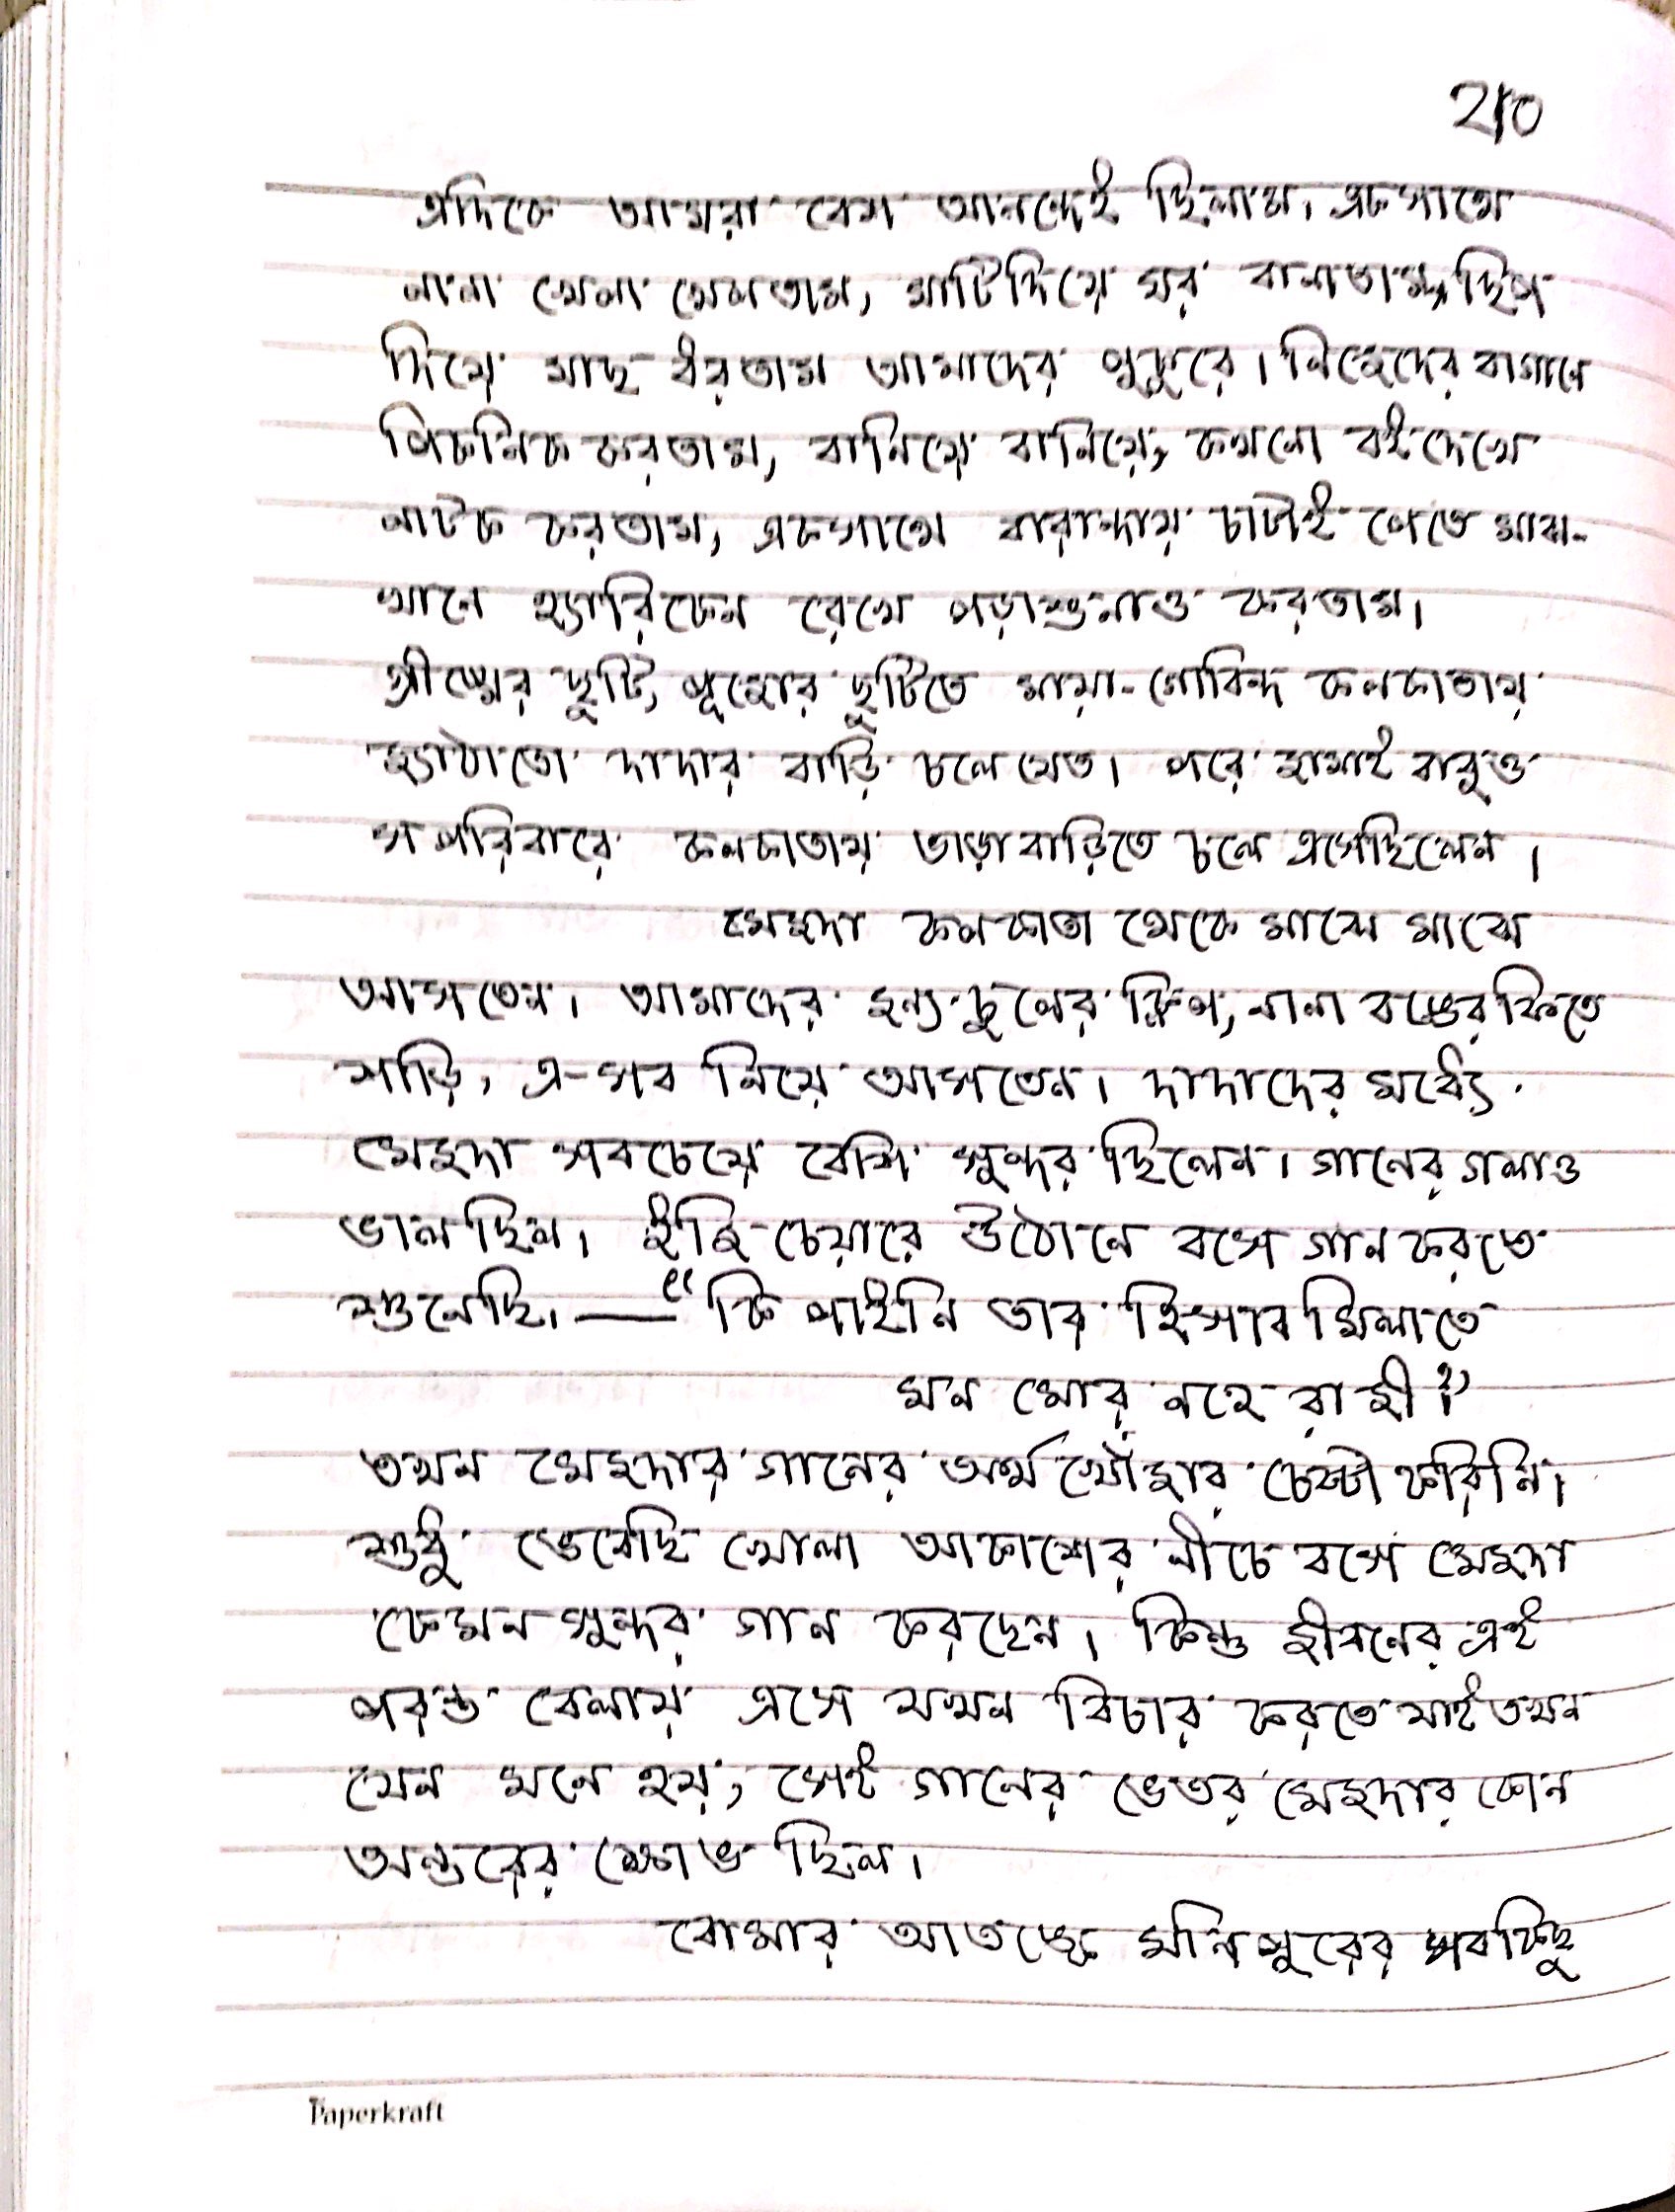 ২১০
এদিকে আমরা বেশ আনন্দেই ছিলাম। একসাথে
নানা খেলা খেলতাম, মাটিদিয়ে ঘর বানাতাম, ছিপ
দিয়ে মাছ ধরতাম আমাদের পুকুরে। নিজেদের বাগানে
পিকনিক করতাম, বানিয়ে বানিয়ে, কখনো বই দেখে
নাটক করতাম, একসাথে বারান্দায় চাটাই পেতে মাঝ-
খানে হ্যারিকেন রেখে পড়াশুনাও করতাম।
গ্রীষ্মের ছুটি, পূজোর ছুটিতে মায়া-গোবিন্দ কলকাতায়
জ্যাঠাতো দাদার বাড়ি চলে যেত। পরে জামাই বাবুও
সপরিবারে কলকাতায় ভাড়াবাড়িতে চলে এসেছিলেন।
মেজদা কলকাতা থেকে মাঝে মাঝে
আসতেন। আমাদের জন্য চুলের ক্লিপ, নানা রঙের ফিতে
শাড়ি, এ-সব নিয়ে আসতেন। দাদাদের মধ্যে
মেজদা সবচেয়ে বেশি সুন্দর ছিলেন। গানের গলাও
ভাল ছিল। ইজি চেয়ারে উঠোনে বসে গান করতে
শুনেছি। — “কি পাইনি তার হিসাব মিলাতে
মন মোর নহে রাজী।”
তখন মেজদার গানের অর্থ খোঁজার চেষ্টা করিনি।
শুধু ভেবেছি খোলা আকাশের নীচে বসে মেজদা
কেমন সুন্দর গান করছেন। কিন্তু জীবনের এই
পরন্ত বেলায় এসে যখন বিচার করতে যাই তখন
যেন মনে হয়, সেই গানের ভেতর মেজদার কোন
অন্তরের ক্ষোভ ছিল।
বোমার আতঙ্কে মনিপুরের সবকিছু
Paperkraft